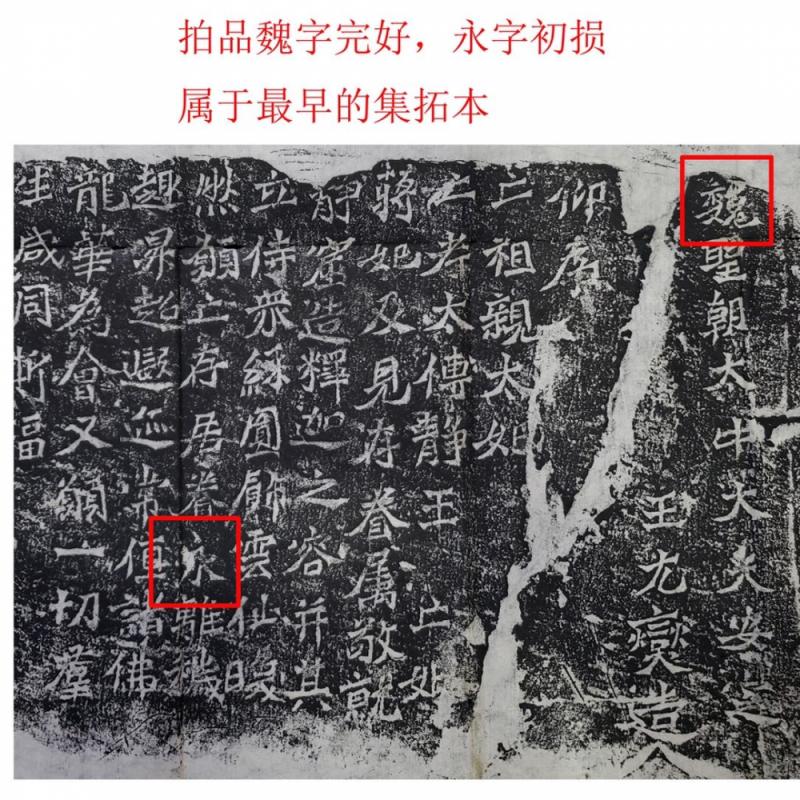 拍品魏字完好，永字初损
属于最早的集拓本
魏聖朝太中大夫安定
王元燮造
仰為
亡祖親太妃
亡考太傅靜王亡妣
蔣妃及見存眷屬敬就
靜窟造釋迦之容并其
立侍眾綵圓飾雲仙暎
然願亡存居眷永離穢
趣昇超迹常值諸佛
龍華為會又願一切群
生咸同斯福